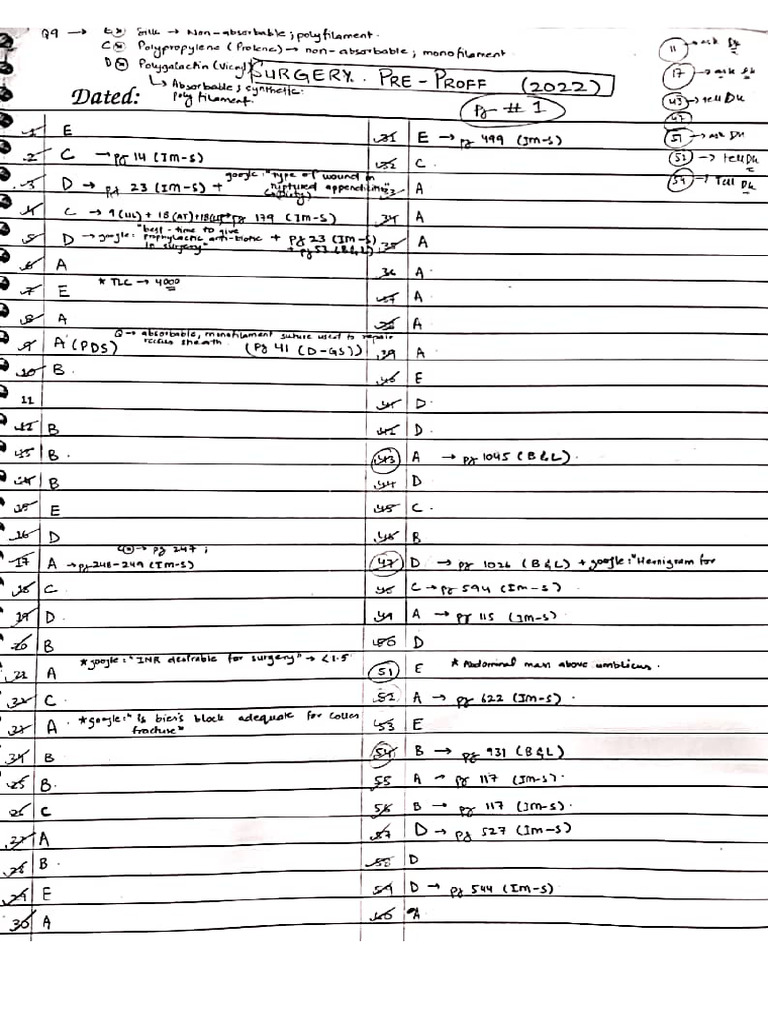 Q9 → E⊗ Silk → Non-absorbable; polyfilament.
C⊗ Polypropylene (Prolene) → non-absorbable; monofilament
D⊗ Polygalactin (Vicryl)
↳ Absorbable; synthetic
polyfilament.
SURGERY. PRE-PROFF (2022)
Pg # 1
11 → ask
17 → ask
43 → tell Dk
47
51 → ask Dk
52 → tell Dk
54 → Tell Dk
Dated:
1 E
2 C → pg 14 (Im-S)
3 D → pg 23 (Im-S) + google: "Type of wound in ruptured appendicitis"
4 C → 9(UL) + 18(AT) + 18 pg 179 (Im-S)
5 D → google: "best-time to give prophylactic anti-biotic in surgery" + pg 23 (Im-S) + pg 53 (B&L)
6 A
7 E * TLC → 4000
8 A
9 A (PDS) Q → absorbable, monofilament suture used to repair rectus sheath (Pg 41 (D-GS))
10 B.
11
12 B
13 B.
14 B
15 E
16 D
17 A → pg 248-249 (Im-S) → pg 247;
18 C
19 D.
20 B
21 A *google: "INR desirable for surgery" → <1.5
22 C.
23 A *google: "is bier's block adequate for colles fracture"
24 B
25 B.
26 C
27 A
28 B.
29 E
30 A
31 E → pg 499 (Im-S)
32 C.
33 A
34 A
35 A
36 A.
37 A
38 A
39 A
40 E
41 D.
42 D.
43 A → pg 1045 (B&L).
44 D
45 C.
46 B
47 D → pg 1026 (B&L) + google: "Hernigram for
48 C → pg 594 (Im-S)
49 A → pg 115 (Im-S)
50 D
51 E * Abdominal mass above umblicus.
52 A → pg 622 (Im-S).
53 E
54 B → pg 931 (B&L)
55 A → pg 117 (Im-S).
56 B → pg 117 (Im-S).
57 D → pg 527 (Im-S)
58 D
59 D → pg 544 (Im-S)
60 A